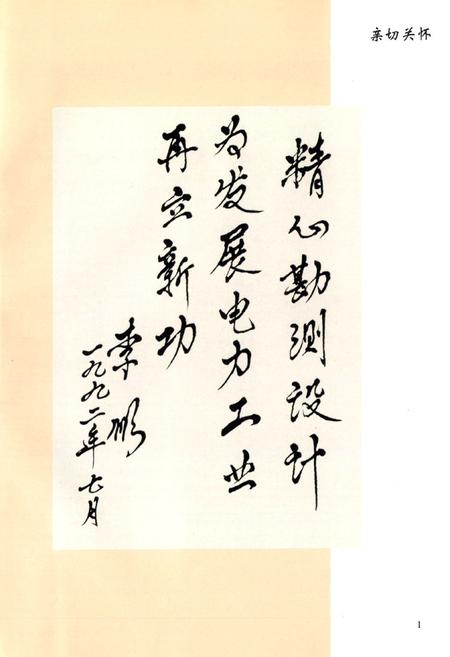 亲切关怀
精心勘测设计
为发展电力工业
再立新功
李鹏
一九九二年七月
1